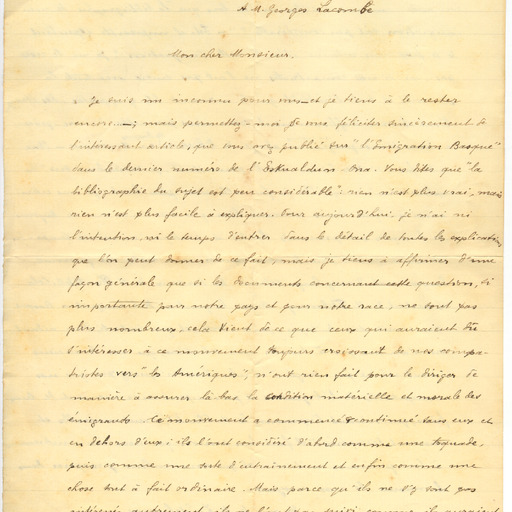 A M. Georges Lacombe
Mon cher Monsieur.
Je suis un inconnu pour vous_et je tiens à le rester
encore_; mais permettez-moi de vous féliciter sincèrement de
l'intéressant article, que vous avez publié sur "l'Emigration Basque"
dans le dernier numéro de l'Eskualdun Ona. Vous dites que "la
bibliographie du sujet est peu considérable": rien n'est plus vrai, mais
rien n'est plus facile à expliquer. Pour aujourd'hui, je n'ai ni
l'intention, ni le temps d'entrer dans le détail de toutes les explications
que l'on peut donner de ce fait; mais je tiens à affirmer d'une
façon générale que si les documents concernant cette question, si
importante pour notre pays et pour nôtre race, ne sont pas
plus nombreux, cela vient de ce que ceux qui auraient dû
s'intéresser à ce mouvement toujours croissant de nos compa-
triotes vers "les Amériques", n'ont rien fait pour le diriger de
manière à assurer là bas la condition matérielle et morale des
émigrants. Ce mouvement a commencé & continué sans eux et
en dehors d'eux; ils l'ont considéré d'abord comme une toquade,
puis comme une sorte d'entrainement et enfin comme une
chose tout à fait ordinaire. Mais parce qu'ils ne s'y sont pas
intéressés autrement, ils ne l'ont pas suivi comme ils auraient